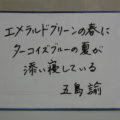 エメラルドグリーンの春に
ターコイズブルーの夏が
添い寝している
五島諭